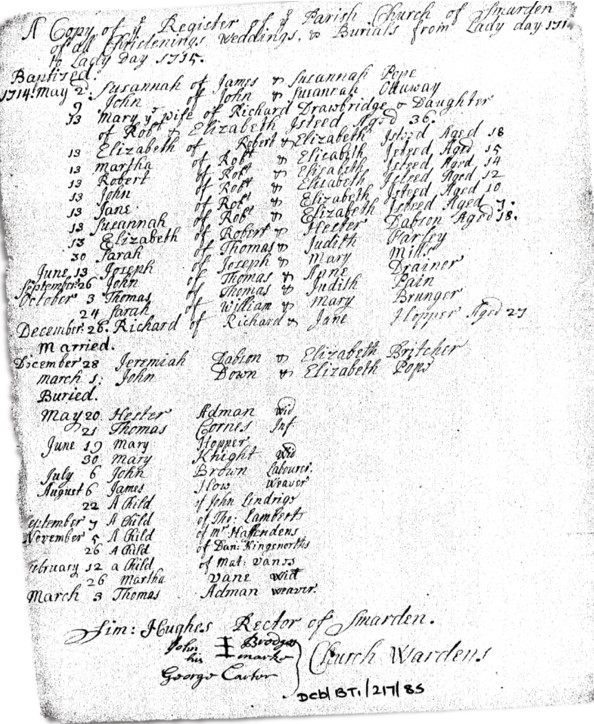 A Copy of yᵉ Register of yᵉ Parish Church of Smarden
of all Christenings Weddings, & Burials from Lady day 171
to Lady Day 1715.
Baptised.
1714. May 2. Susannah of James & Susannah Pope
9 John of John & Susannah Ottaway
13 Mary yᵉ wife of Richard Drawbridge & Daughter
of Robᵗ & Elizabeth Isteed Aged 36.
13 Elizabeth of Robert & Elizabeth Isteed Aged 18
13 Martha of Robᵗ & Elizabeth Isteed Aged 15
13 Robert of Robᵗ & Elizabeth Isteed Aged 14
13 John of Robᵗ & Elizabeth Isteed Aged 12
13 Jane of Robᵗ & Elizabeth Isteed Aged 10
13 Susannah of Robᵗ & Elizabeth Isteed Aged 7.
13 Elizabeth of Robert & Hester Dabson Aged 18.
30 Sarah of Thomas & Judith Varley
June 13 Joseph of Joseph & Mary Mills
September 26 John of Thomas & Anne Drainer
October 3 Thomas of Thomas & Judith Pain
24 Sarah of William & Mary Brunger
December 26. Richard of Richard & Jane Hopper Aged 27
Married.
December 28 Jeremiah Dabson & Elizabeth Britcher
March 1. John Down & Elizabeth Pope
Buried.
May 20 Hester Adman wid
21 Thomas Cornes Inf
June 19 Mary Hopper
30 Mary Knight wid
July 6 John Brown Labourer
August 6 James How Weaver
22 A Child of John Lindrigs
September 7 A Child of Tho: Lamberts
November 5 A Child of Mʳ Haffendens
26 A Child of Dan: Kingsnorths
February 12 a Child of Mat: Vanss
26 Martha Vane Wid
March 3 Thomas Adman weaver
Sim: Hughes Rector of Smarden.
John Brodger
his marke
George Carter
Church Wardens
Dcb/BT1/217/85